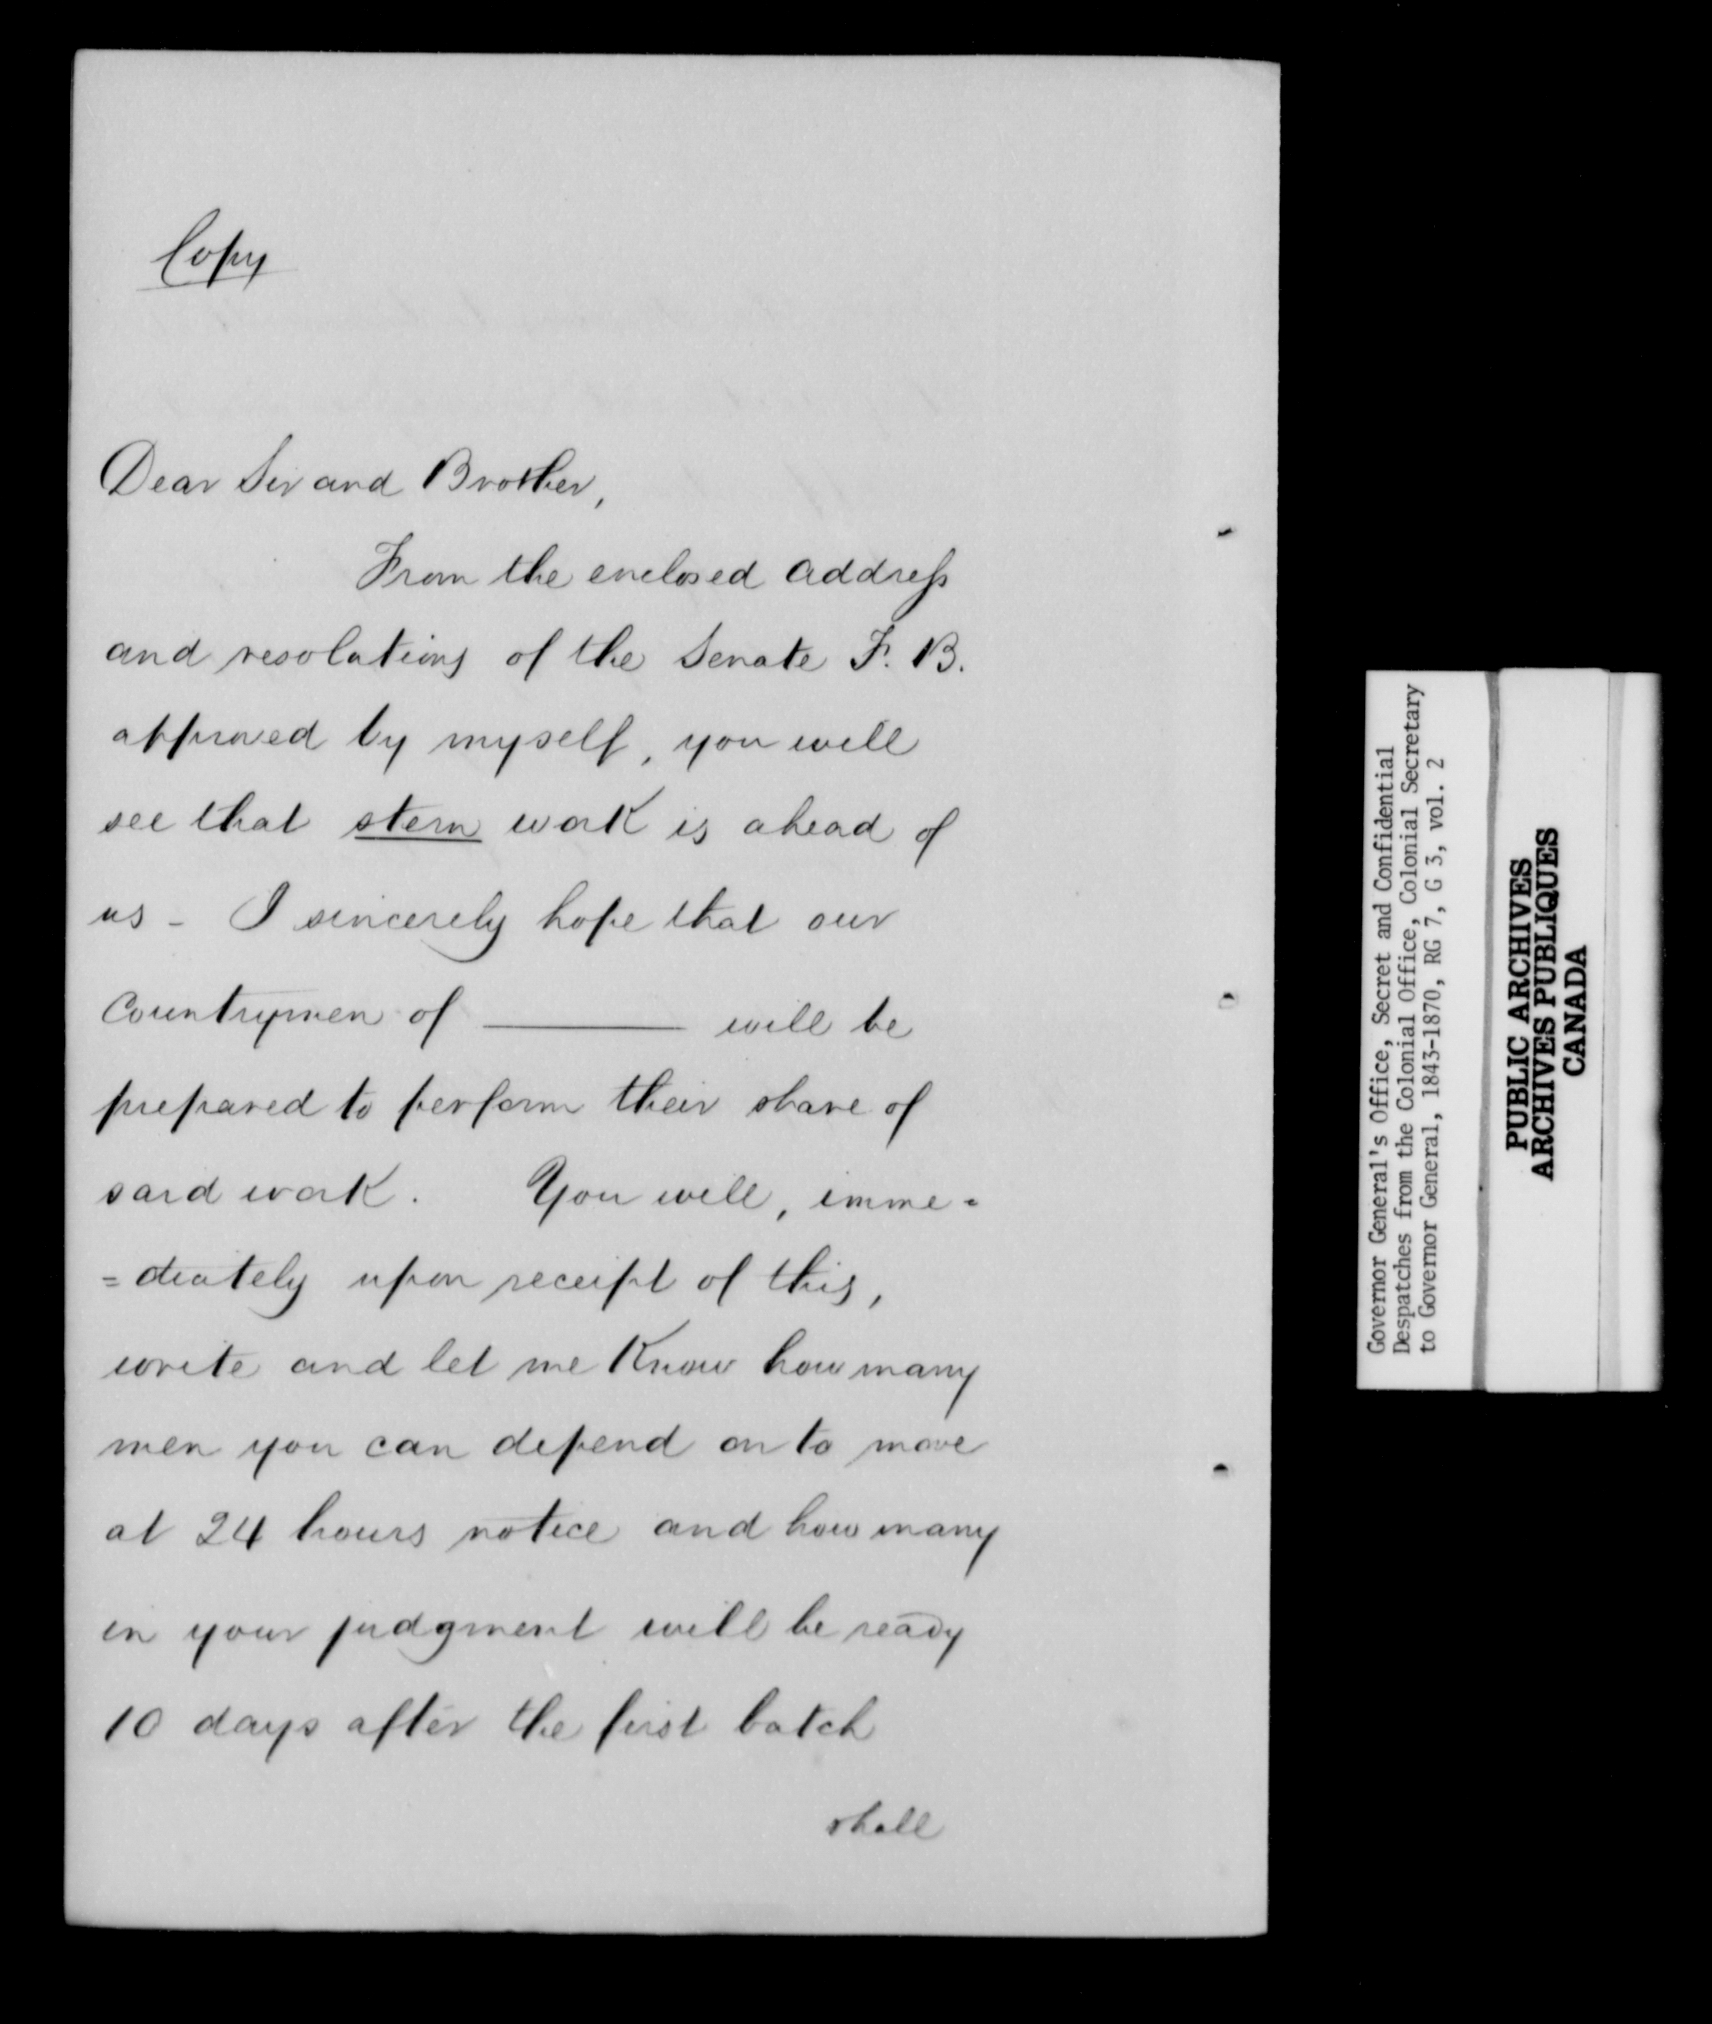 Copy
Dear Sir and Brother,
From the enclosed address
and resolutions of the Senate F. B.
approved by myself, you will
see that stern work is ahead of
us - I sincerely hope that our
Countrymen of ———— will be
prepared to perform their share of
said work. You will, imme=
=diately upon receipt of this,
write and let me Know how many
men you can depend on to move
at 24 hours notice and how many
in your judgment will be ready
10 days after the first batch
shall
Governor General's Office, Secret and Confidential
Despatches from the Colonial Office, Colonial Secretary
to Governor General, 1843-1870, RG 7, G 3, vol. 2
PUBLIC ARCHIVES
ARCHIVES PUBLIQUES
CANADA